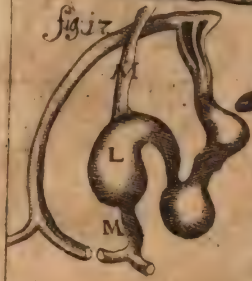 fig. 17
M
L
M